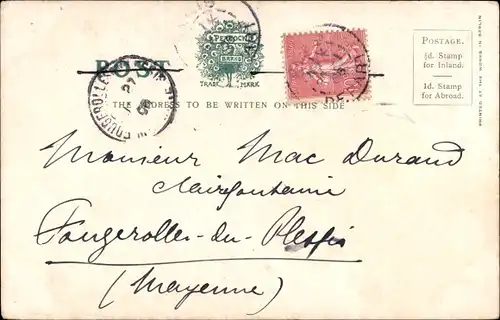 PEACOCK
BRAND
TRADE MARK
POST
THE ADDRESS TO BE WRITTEN ON THIS SIDE
POSTAGE.
½d. Stamp
for Inland.
1d. Stamp
for Abroad.
PRINTED AT THE WORKS IN BERLIN
Monsieur Mac Durand
Clairefontaine
Fougerolles-du-Plessis
(Mayenne)